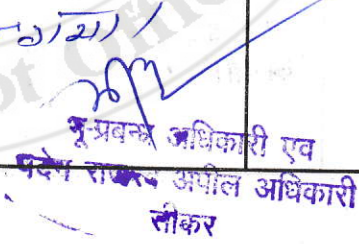 गया।
भू-प्रबन्ध अधिकारी एव
पदेन राजस्व अपील अधिकारी
सीकर